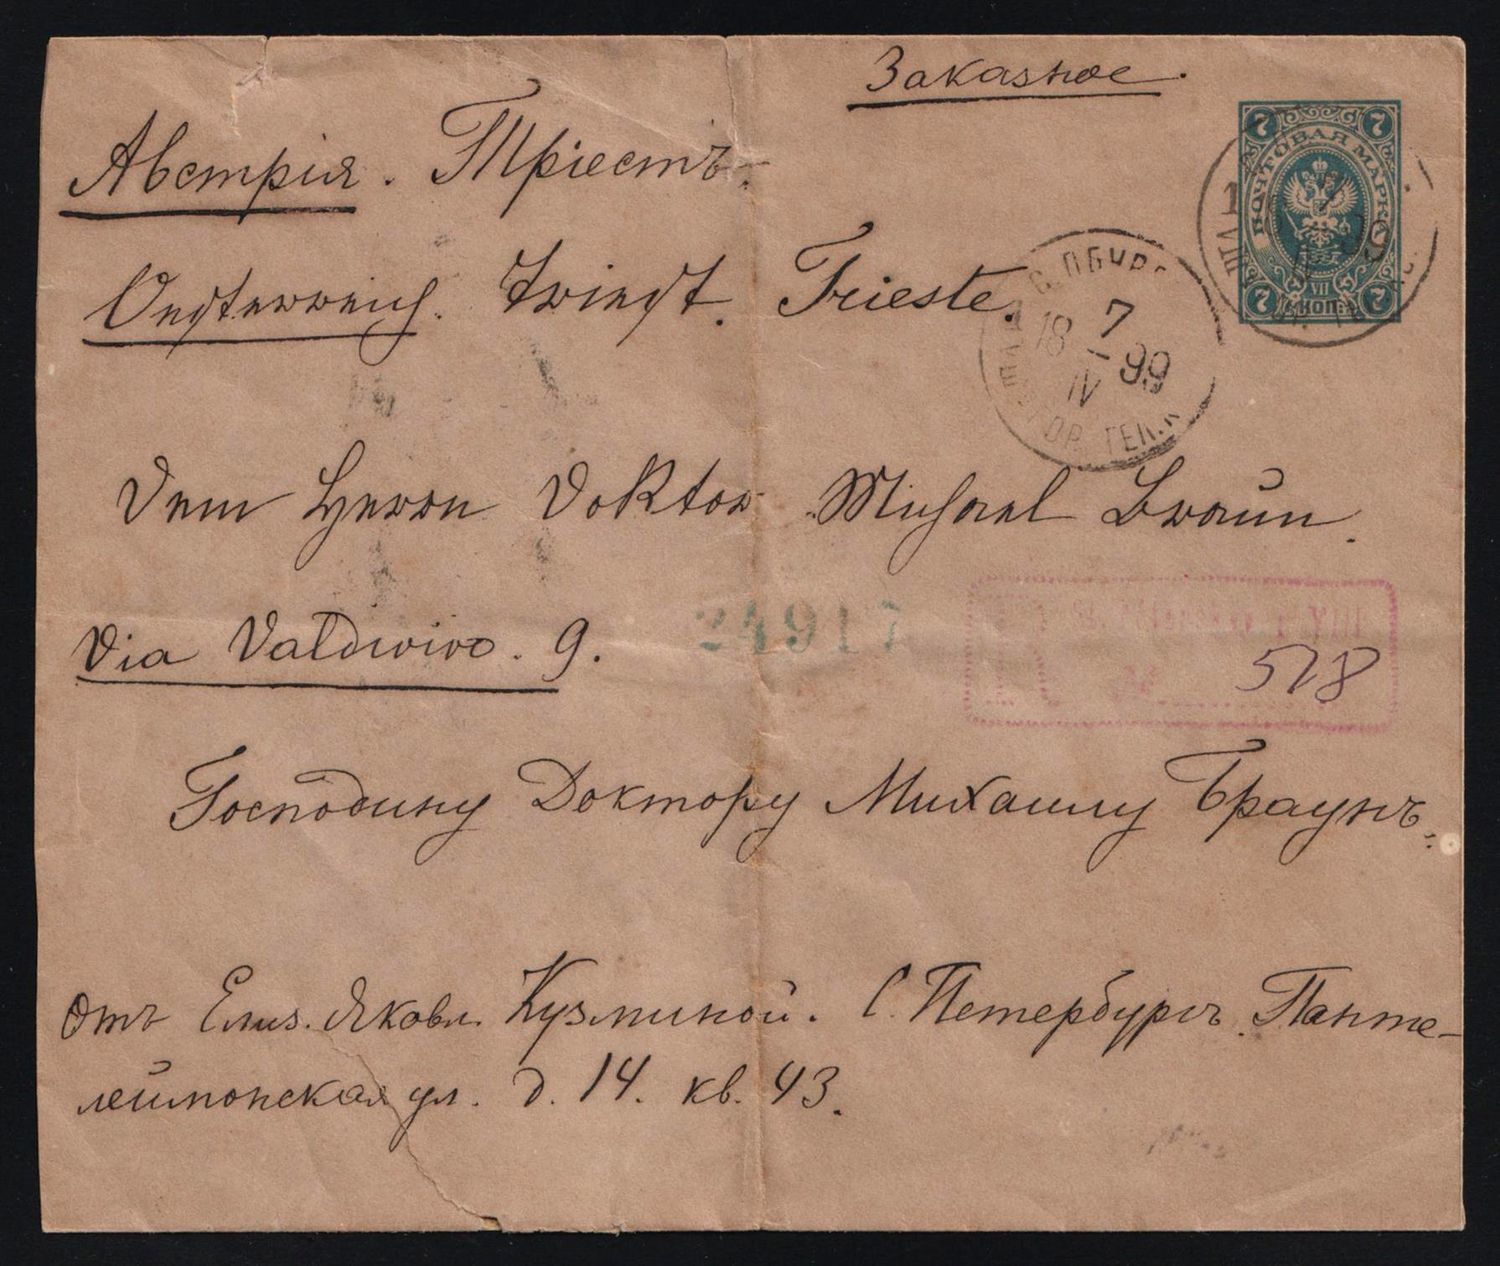 Заказное.
Австрія. Тріестъ.
Oesterreich. Triest. Trieste.
ПОЧТОВАЯ МАРКА
7 7
7 7
VII
КОП.
7
18 99
IV
Dem Herrn Doktor Michael Braun.
24917
Via Valdirivo. 9.
578
Господину Доктору Михаилу Браунъ.
Отъ Елиз. Яковл. Кузминой. С. Петербургъ. Панте-
леймонская ул. д. 14. кв. 43.